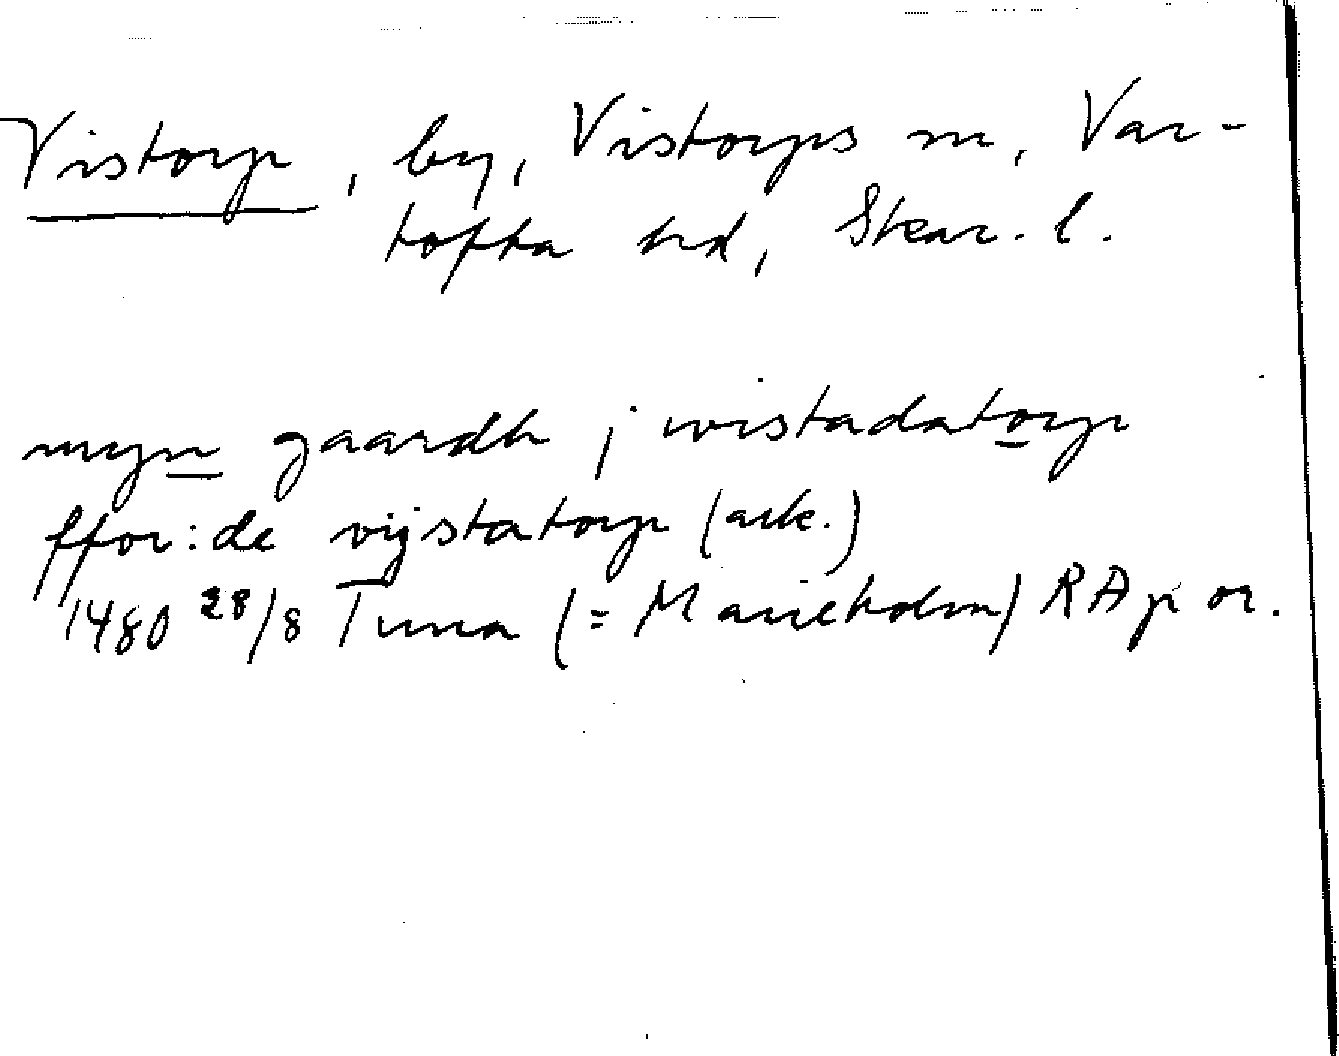 Vistorp, by, Vistorps sn, Var-
tofta hd, Skar. l.
myn gaardh j wistadatorp
ffor:de vijstatorp (ack.)
1480 28/8 Tuna (= Marieholm) RAp or.